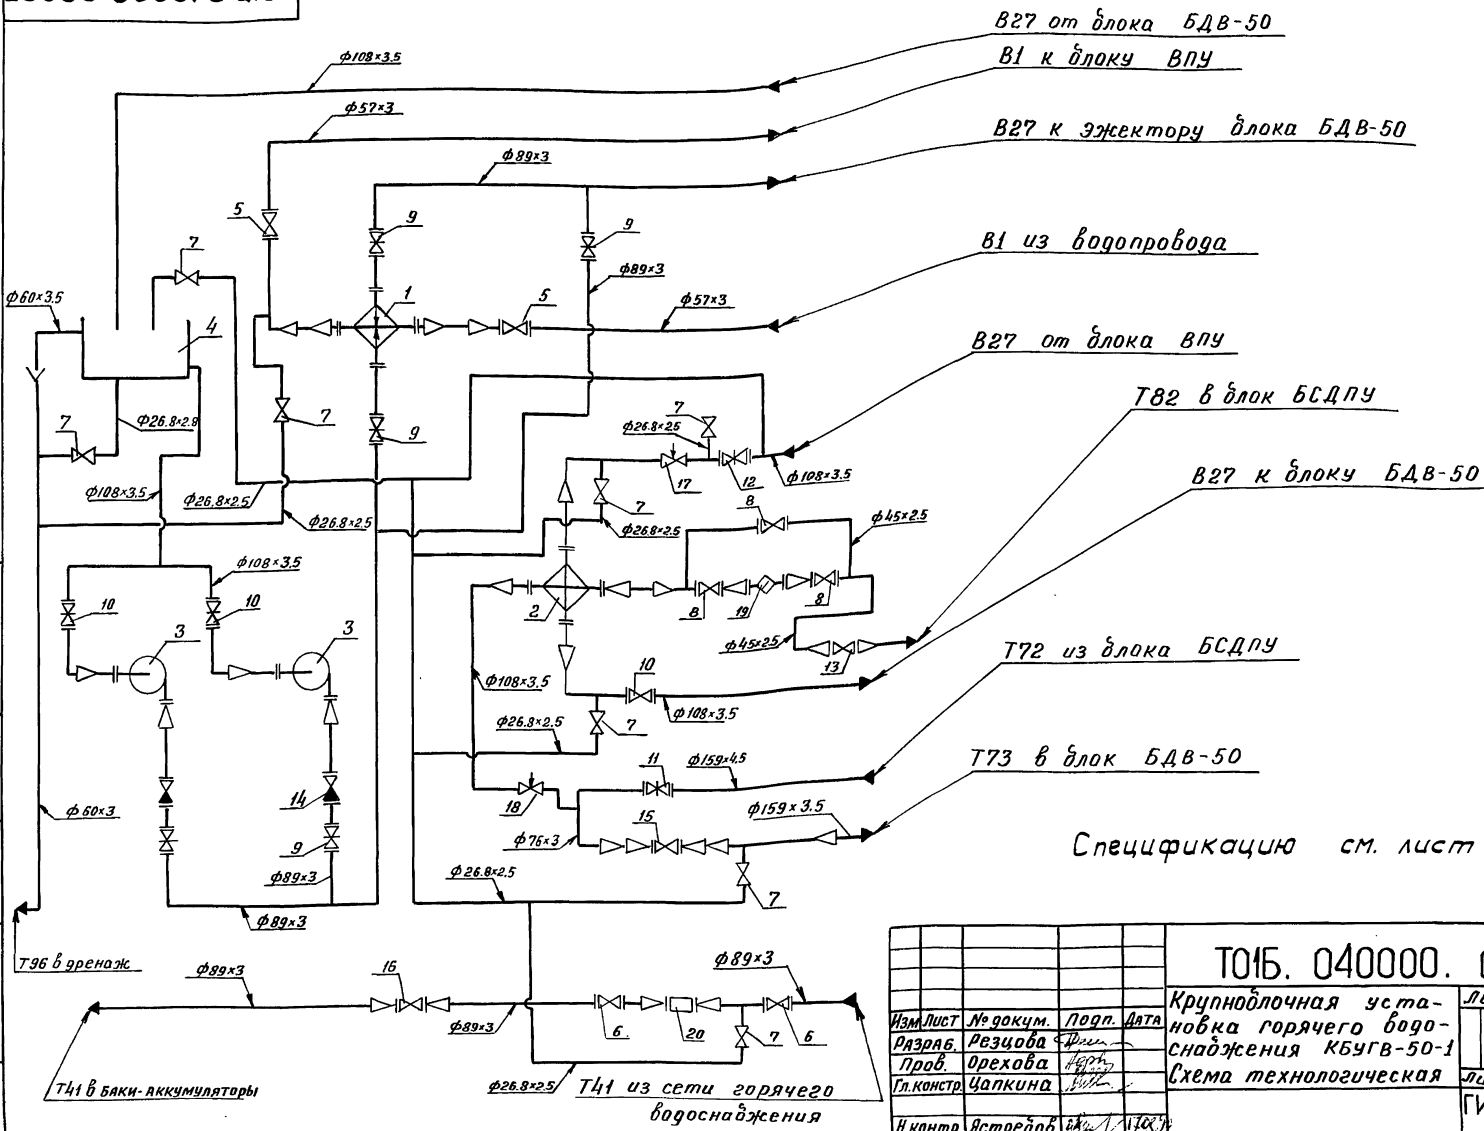 В27 от блока БДВ-50
В1 к блоку ВПУ
В27 к эжектору блока БДВ-50
В1 из водопровода
В27 от блока ВПУ
Т82 в блок БСДПУ
В27 к блоку БДВ-50
Т72 из блока БСДПУ
Т73 в блок БДВ-50
Спецификацию см. лист
ф108×3.5
ф57×3
ф89×3
5
9
9
7
ф89×3
ф60×3.5
1
5
ф57×3
4
7
7
ф26.8×2.8
7
9
ф26.8×2.5
17
12
ф108×3.5
ф108×3.5
ф26.8×2.5
ф26.8×2.5
7
ф26.8×2.5
8
ф45×2.5
ф108×3.5
10
10
2
8
19
8
3
3
ф45×2.5
13
ф108×3.5
10
ф108×3.5
ф26.8×2.5
7
11
ф159×4.5
14
18
15
ф159×3.5
ф60×3
ф76×3
9
ф89×3
ф26.8×2.5
7
ф89×3
Т96 в дренаж
ф89×3
16
ф89×3
ф89×3
6
20
7
6
ф26.8×2.5
Т41 в баки-аккумуляторы
Т41 из сети горячего
водоснабжения
Т01Б. 040000.
Крупноблочная уста-
новка горячего водо-
снабжения КБУГВ-50-1
Схема технологическая
Изм Лист № докум. Подп. Дата
Разраб. Резцова
Пров. Орехова
Гл.констр. Цапкина
Н.контр. Ястребов